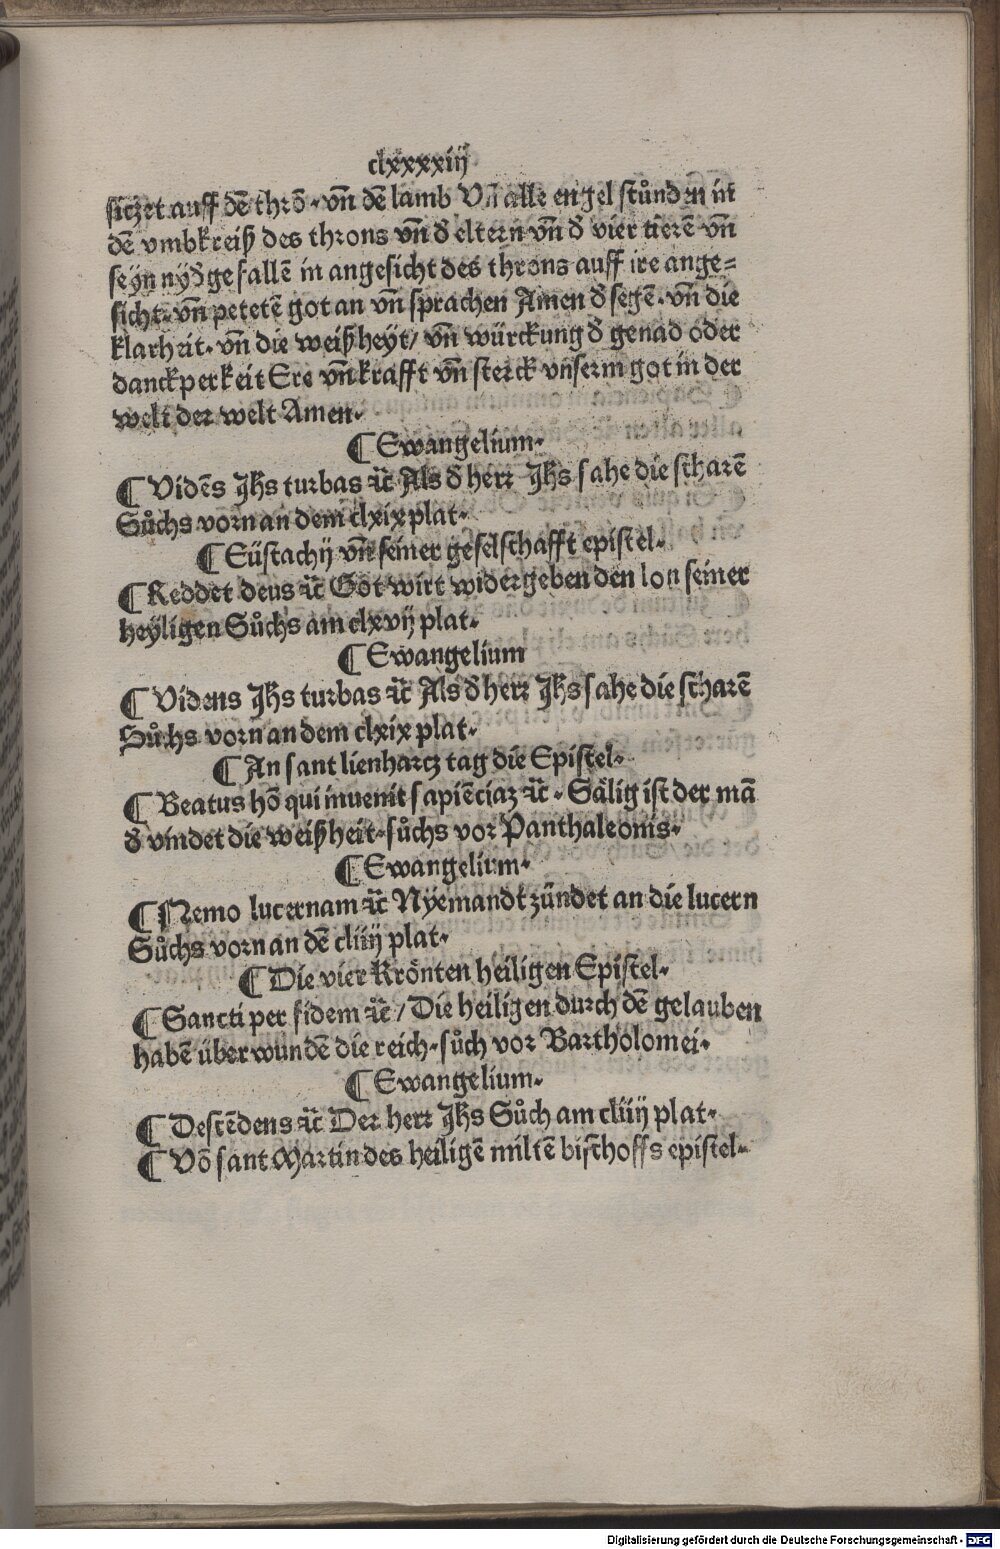 clxxxxiij
sitzet auff dē thrō · vn̄ dē lamb Vn̄ alle engel stůnden in
dē vmbkreiß des throns vn̄ đ eltern vn̄ đ vier tierē vn̄
seyn nyđgefallē in angesicht des throns auff ire ange⸗
sicht · vn̄ petetē got an vn̄ sprachen Amen đ segē · vn̄ die
klarheit · vn̄ die weißheyt / vn̄ würckung đ genad oder
danckperkeit Ere vn̄ krafft vn̄ sterck vnserm got in der
welt der welt Amen ·
¶ Ewangelium ·
¶ Vidēs Jhs turbas ⁊c̈ Als đ herr Jhs sahe die scharē
Sůchs vorn an dem clxix plat ·
¶ Eüstachij vn̄ seiner geselschafft epistel ·
¶ Reddet deus ⁊c̈ Got wirt widergeben den lon seiner
heyligen Sůchs am clxvij plat ·
¶ Ewangelium
¶ Videns Jhs turbas ⁊c̈ Als đ herr Jhs sahe die scharē
Sůchs vorn an dem clxix plat ·
¶ An sant lienhartz tag die Epistel ·
¶ Beatus hō qui inuenit sapiēciaz ⁊c̈ · Sälig ist der mā
đ vindet die weißheit · sůchs vor Panthaleonis ·
¶ Ewangelium ·
¶ Nemo lucernam ⁊c̈ Nyemandt zündet an die lucern
Sůchs vorn an dē cliiij plat ·
¶ Die vier Krönten heiligen Epistel ·
¶ Sancti per fidem ⁊c̈ / Die heiligen durch dē gelauben
habē überwundē die reich · sůch vor Bartholomei ·
¶ Ewangelium ·
¶ Descēdens ⁊c̈ Der herr Jhs Sůch am cliiij plat ·
¶ Vō sant Martin des heiligē miltē bischoffs epistel ·
Digitalisierung gefördert durch die Deutsche Forschungsgemeinschaft - DFG